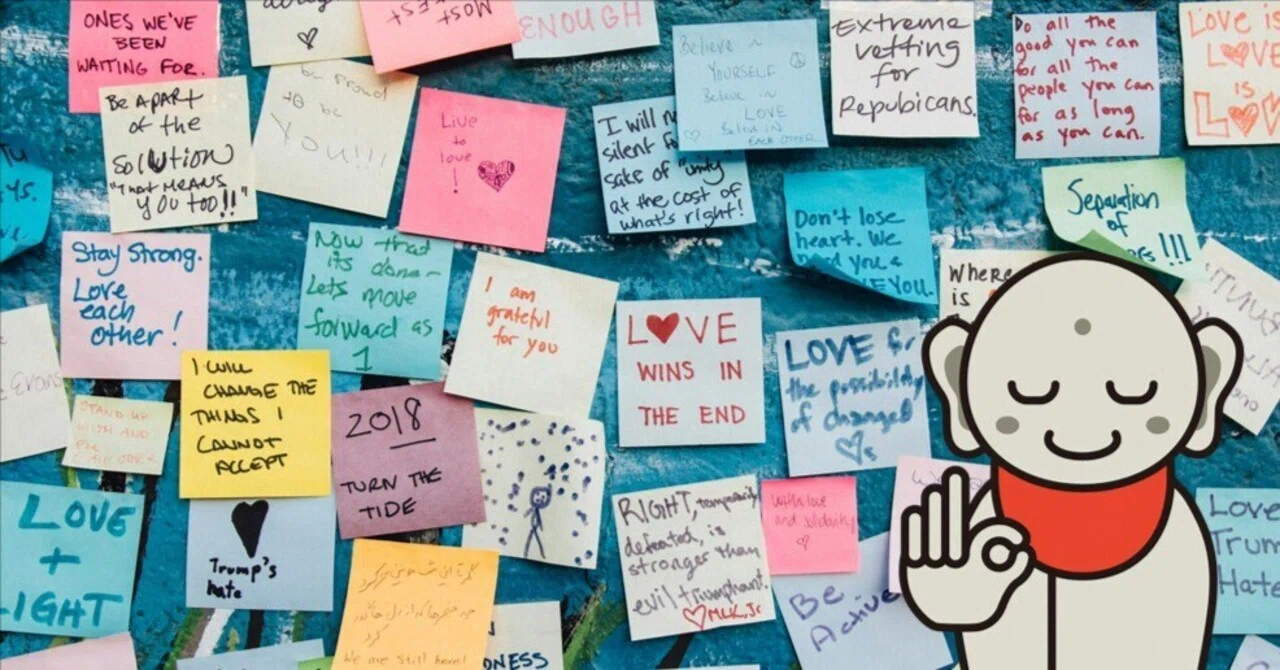 ONES WE'VE
BEEN
WAITING FOR.
MOST
ENOUGH
Believe in
YOURSELF
Believe in
LOVE
Believe in
EACH OTHER
Extreme
vetting
for
Repubicans.
Do all the
good you can
for all the
people you can
for as long
as you can.
LOVE is
LOVE
IS
LOVE
Be A PART
of the
SOLUTION
"THAT MEANS
YOU TOO!!"
be proud
to be
YOU!!!
Live
to
love
!
I will
silent
sake of "unity
at the cost of
what's right!
Don't lose
heart. We
need you &
LOVE YOU.
Separation
of
!!!
Where
is
Stay Strong.
Love
each
other!
Now that
its done-
Lets move
forward as
1
I am
grateful
for you
LOVE
WINS IN
THE END
LOVE for
the possibility
of changed
Evans
STAND UP
WITH AND
FOR
EACH OTHER
I WILL
CHANGE THE
THINGS I
CANNOT
ACCEPT
2018
TURN THE
TIDE
RIGHT, temporarily
defeated, is
stronger than
evil triumphant.
MLK, Jr
With love
and solidarity
LOVE
+
LIGHT
Trump's
hate
We are still here!
Be
Active
Love
Trum
Hate